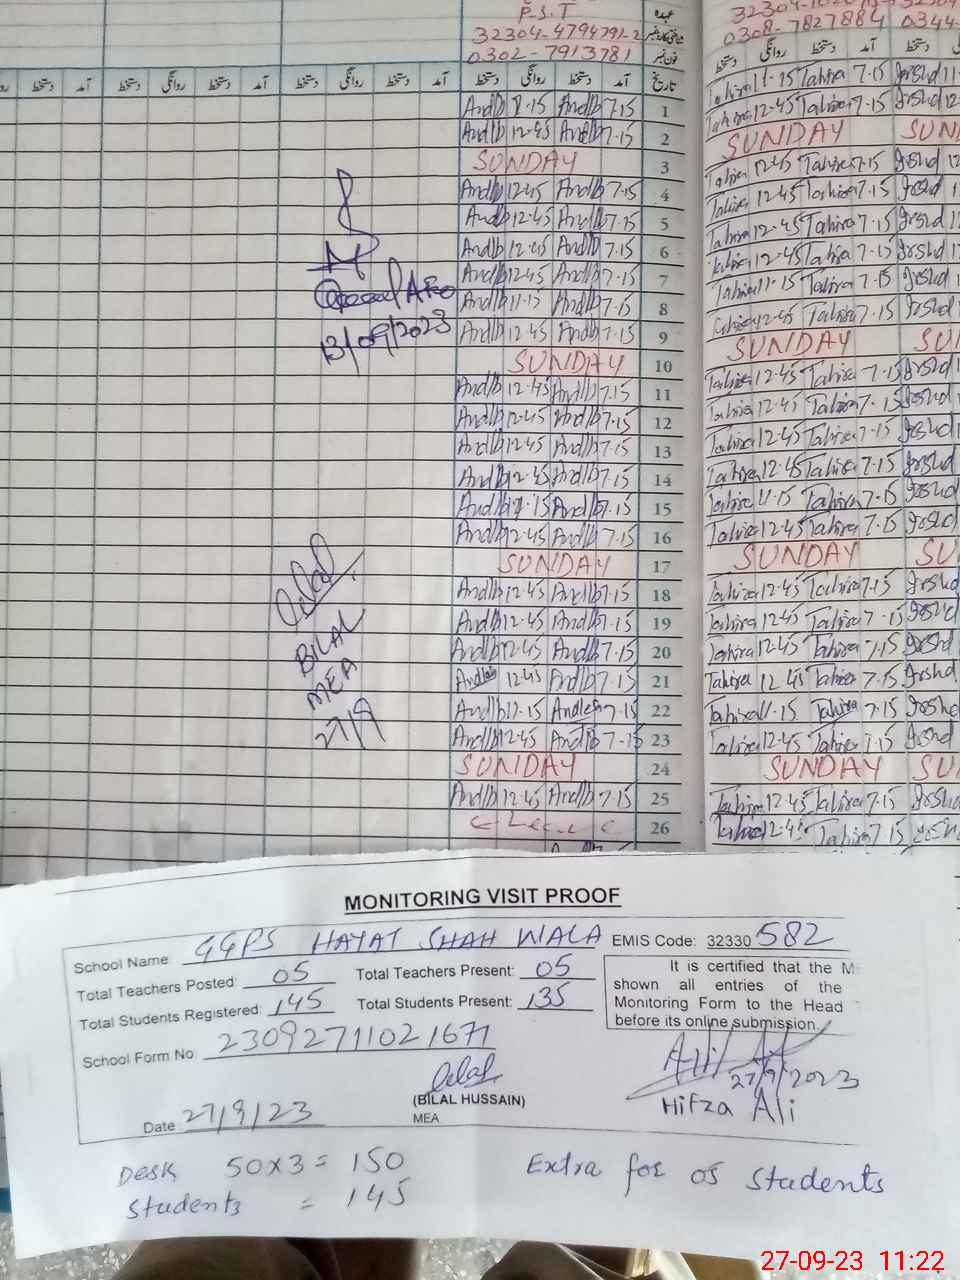 P.S.T عہدہ
32304-4794791-2 شناختی کارڈ نمبر
0302-7913781 فون نمبر
0308-7827884 0344-
دستخط آمد دستخط روانگی دستخط آمد دستخط روانگی دستخط آمد دستخط روانگی دستخط آمد تاریخ
دستخط روانگی دستخط آمد دستخط
Andlb 7.15 1
Andlb 12.45 Andlb 7.15 2
SUNDAY 3
Andlb 12.45 Andlb 7.15 4
Andlb 12.45 Andlb 7.15 5
Andlb 12.45 Andlb 7.15 6
Andlb 12.45 Andlb 7.15 7
Andlb 11.15 Andlb 7.15 8
Andlb 12.45 Andlb 7.15 9
SUNDAY 10
Andlb 12.45 Andlb 7.15 11
Andlb 12.45 Andlb 7.15 12
Andlb 12.45 Andlb 7.15 13
Andlb 12.45 Andlb 7.15 14
Andlb Andlb 7.15 15
Andlb 12.45 Andlb 7.15 16
SUNDAY 17
Andlb 12.45 Andlb 7.15 18
Andlb 12.45 Andlb 7.15 19
Andlb 12.45 Andlb 7.15 20
12.45 Andlb 7.15 21
Andlb 7.15 22
Andlb 12.45 Andlb 7.15 23
SUNDAY 24
Andlb 12.45 Andlb 7.15 25
26
Tahira 11.15 Tahira 7.15 Irshd 11
Tahira 12.45 Tahira 7.15 Irshd 12
SUNDAY SUN
Tahira 12.45 Tahira 7.15 Irshd
Tahira 12.45 Tahira 7.15 Irshd
Tahira 12.45 Tahira 7.15 Irshd
Tahira 12.45 Tahira 7.15 Irshd
Tahira 11.15 Tahira 7.15 Irshd
Tahira 12.45 Tahira 7.15 Irshd
SUNDAY SU
Tahira 12.45 Tahira 7.15 Irshd
Tahira 12.45 Tahira 7.15 Irshd
Tahira 12.45 Tahira 7.15 Irshd
Tahira 12.45 Tahira 7.15 Irshd
Tahira 11.15 Tahira 7.15 Irshd
Tahira 12.45 Tahira 7.15 Irshd
SUNDAY SU
Tahira 12.45 Tahira 7.15 Irshd
Tahira 12.45 Tahira 7.15 Irshd
Tahira 12.45 Tahira 7.15 Irshd
Tahira 12.45 Tahira 7.15 Irshd
Tahira 11.15 Tahira 7.15 Irshd
Tahira 12.45 Tahira 7.15 Irshd
SUNDAY SU
Tahira 12.45 Tahira 7.15 Irshd
Tahira 12.45 Tahira 7.15 Irshd
AEO
13/09/2023
Bilal
BILAL
MEA
27/9
MONITORING VISIT PROOF
School Name: GGPS HAYAT SHAH WALA EMIS Code: 32330 582
Total Teachers Posted: 05 Total Teachers Present: 05
Total Students Registered: 145 Total Students Present: 135
It is certified that the M
shown all entries of the
Monitoring Form to the Head
before its online submission.
School Form No. 23092711021671
Bilal
(BILAL HUSSAIN)
MEA
27/9/2023
Hifza Ali
Date 27/9/23
Desk 50x3 = 150
Students = 145
Extra for 05 students
27-09-23 11:22